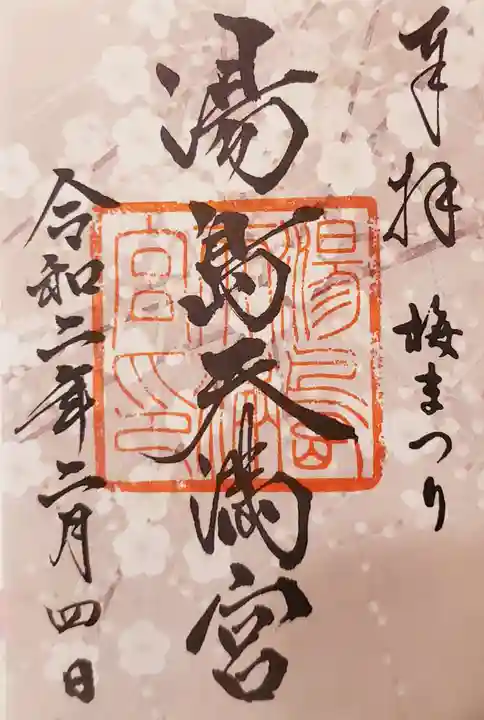 奉拝 梅まつり
湯島天満宮
令和二年二月四日
湯島天満宮印